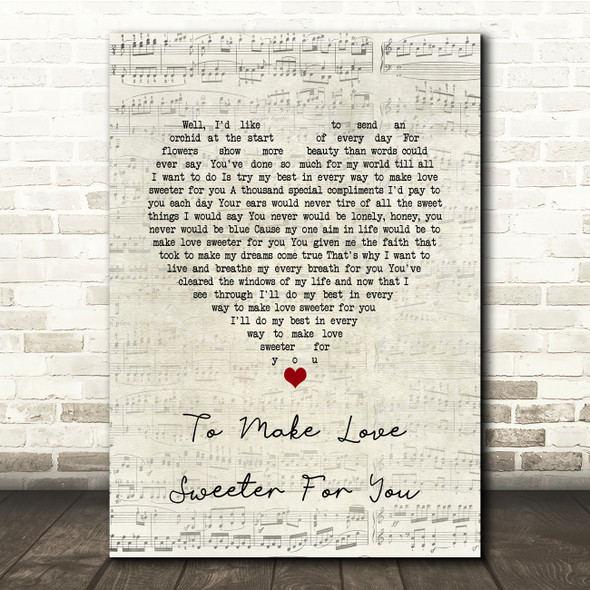 Well, I'd like to send an
orchid at the start of every day For
flowers show more beauty than words could
ever say You've done so much for my world till all
I want to do Is try my best in every way to make love
sweeter for you A thousand special compliments I'd pay to
you each day Your ears would never tire of all the sweet
things I would say You never would be lonely, honey, you
never would be blue Cause my one aim in life would be to
make love sweeter for you You given me the faith that
took to make my dreams come true That's why I want to
live and breathe my every breath for you You've
cleared the windows of my life and now that I
see through I'll do my best in every
way to make love sweeter for you
I'll do my best in every
way to make love
sweeter for
you
To Make Love
Sweeter For You